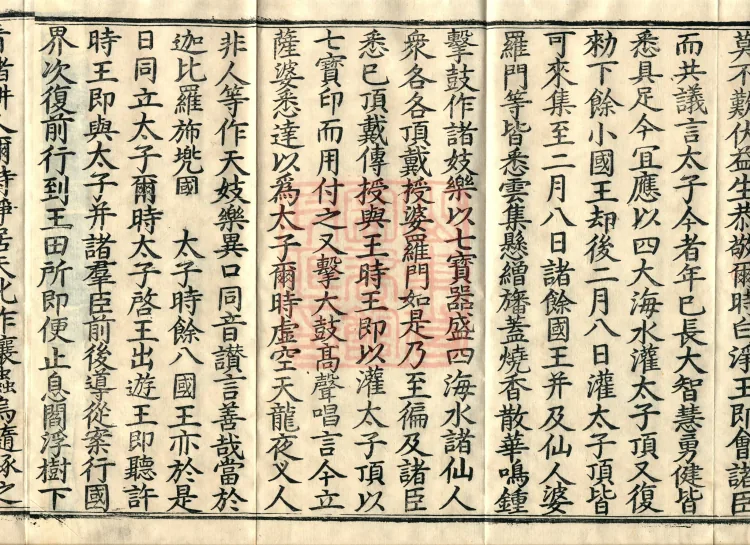 莫不歎伏益生恭敬爾時白淨王即會諸臣
而共議言太子今者年已長大智慧勇健皆
悉具足今宜應以四大海水灌太子頂又復
勑下餘小國王却後二月八日灌太子頂皆
可來集至二月八日諸餘國王并及仙人婆
羅門等皆悉雲集懸繒旛蓋燒香散華鳴鍾
擊鼓作諸妓樂以七寶器盛四海水諸仙人
衆各各頂戴授婆羅門如是乃至徧及諸臣
悉已頂戴傳授與王時王即以灌太子頂以
七寶印而用付之又擊大鼓高聲唱言今立
薩婆悉達以爲太子爾時虛空天龍夜叉人
非人等作天妓樂異口同音讃言善哉當於
迦比羅旆兜國 太子時餘八國王亦於是
日同立太子爾時太子啓王出遊王即聽許
時王即與太子并諸羣臣前後導從案行國
界次復前行到王田所即便止息閻浮樹下
耕人爾時淨居天化作壤蟲烏隨啄之